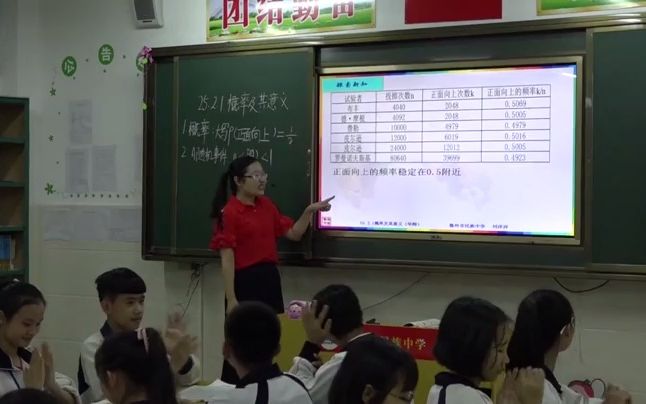 团结勤奋
公告
25.2.1概率及其意义
1 概率:
P(正面向上)=1/2
2
探索新知
试验者 投掷次数n 正面向上次数k 正面向上的频率k/n
布丰 4040 2048 0.5069
德·摩根 4092 2048 0.5005
费勒 10000 4979 0.4979
皮尔逊 12000 6019 0.5016
皮尔逊 24000 12012 0.5005
罗曼诺夫斯基 80640 39699 0.4923
正面向上的频率稳定在0.5附近
25.2.1概率及其意义
民族中学
中学